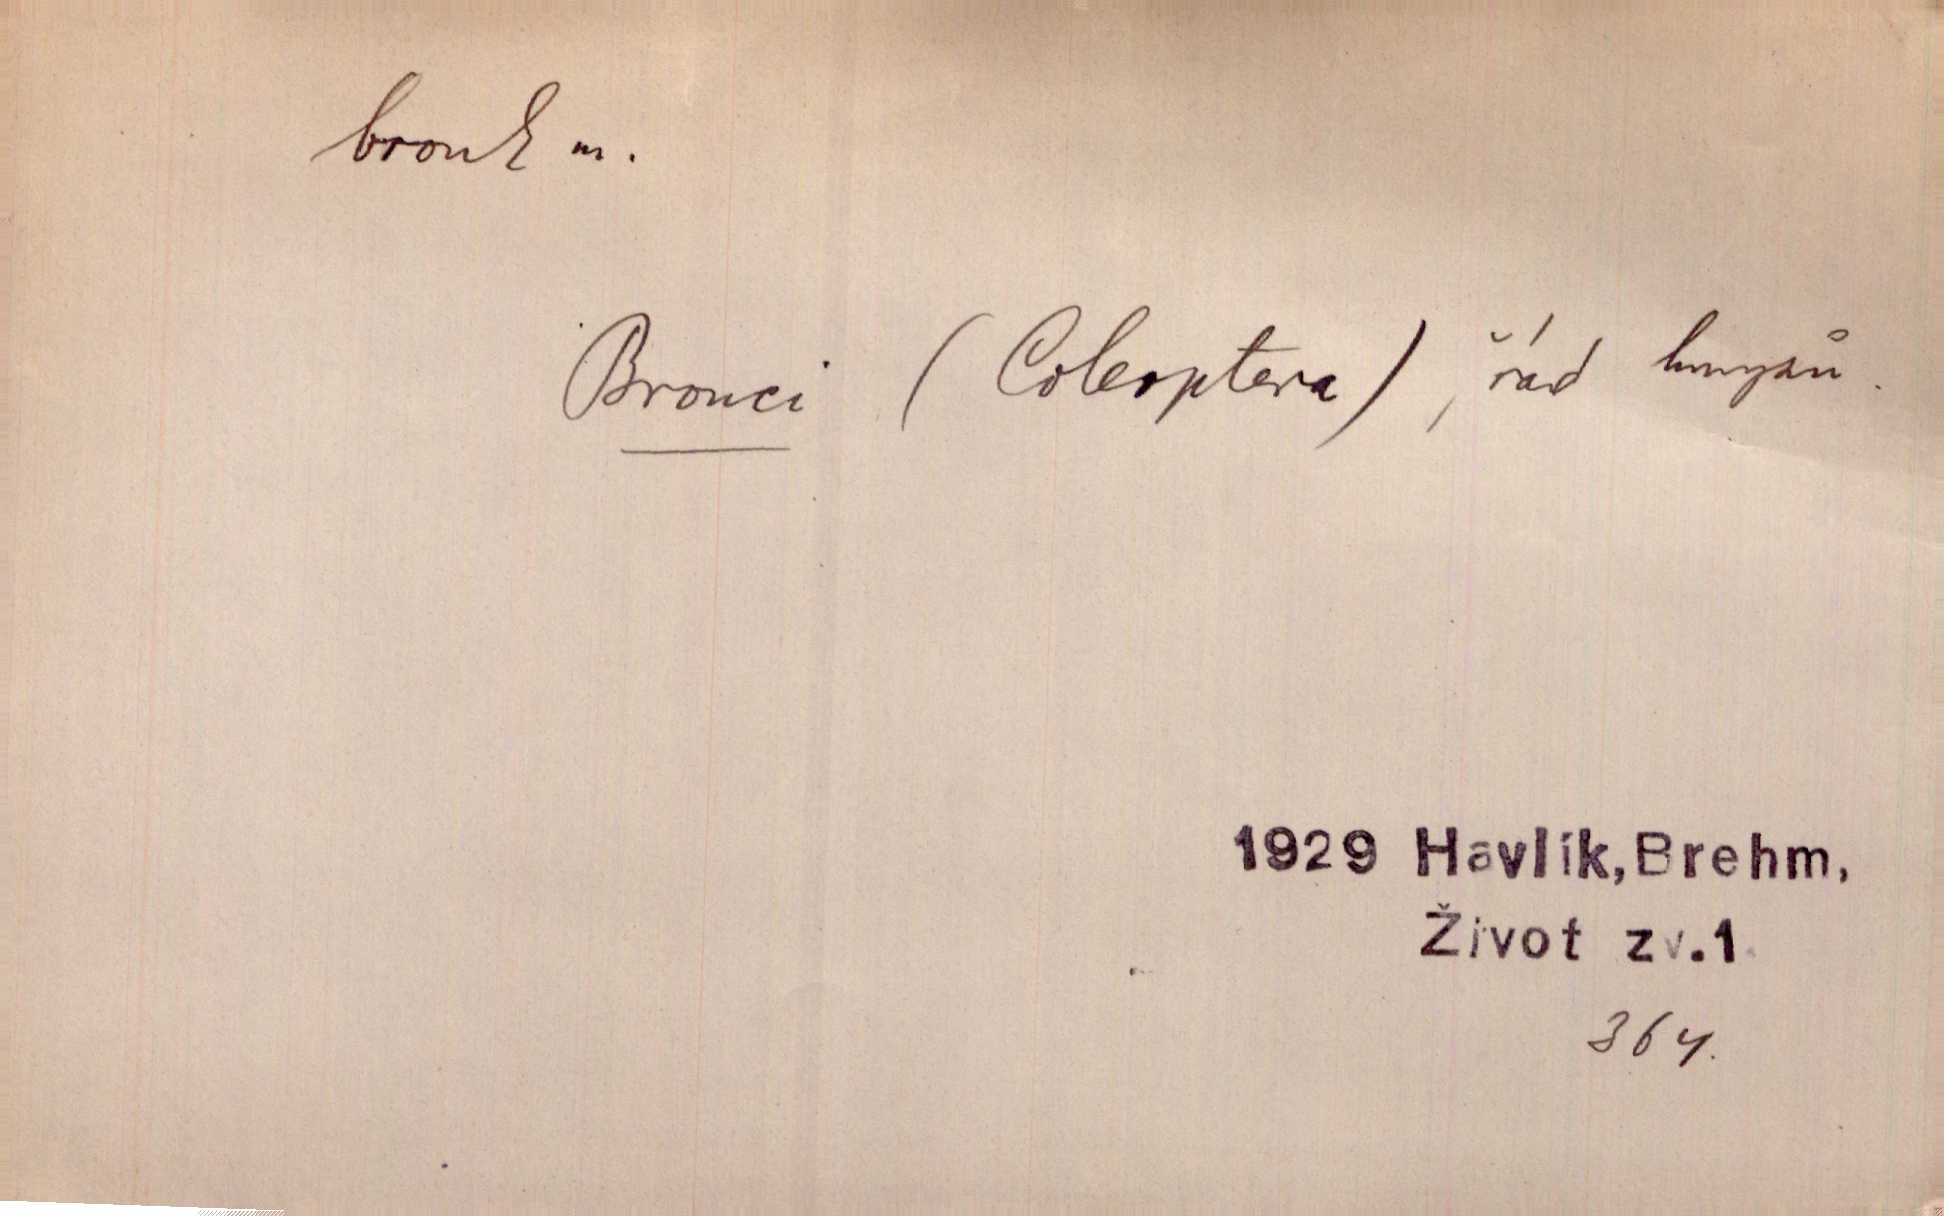 brouk m.
Brouci (Coleoptera), řád hmyzů.
1929 Havlík, Brehm,
Život zv.1.
364.